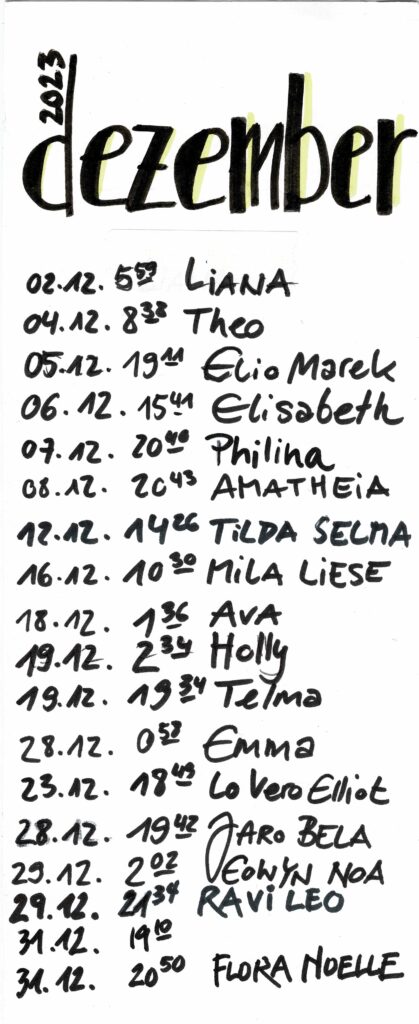 2023
dezember
02.12. 5⁵⁹ LiANA
04.12. 8³⁸ Theo
05.12. 19¹¹ Elio Marek
06.12. 15⁴¹ Elisabeth
07.12. 20⁴⁰ Philina
08.12. 20⁴³ AMATHEiA
12.12. 14²⁶ TiLDA SELMA
16.12. 10³⁰ MiLA LiESE
18.12. 1³⁶ AvA
19.12. 2³⁴ Holly
19.12. 19³⁴ Telma
28.12. 0⁵⁸ Emma
23.12. 18⁴⁹ Lo Vero Elliot
28.12. 19⁴² JARO BELA
29.12. 2⁰² EOWYN NOA
29.12. 21³⁴ RAVi LEO
31.12. 19¹⁰
31.12. 20⁵⁰ FLORA NOELLE